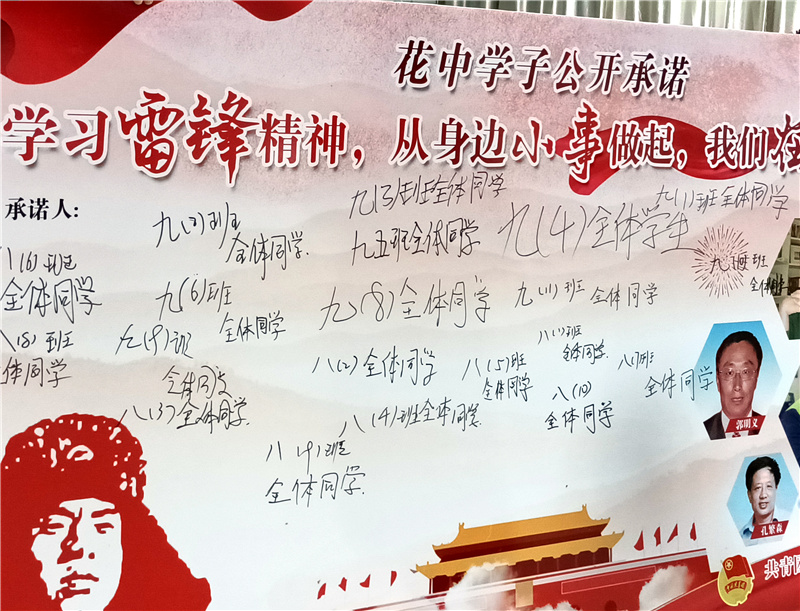 花中学子公开承诺
学习雷锋精神，从身边小事做起，我们在
承诺人：
九(3)班全体同学
九(1)班全体同学
九(2)班
全体同学
九五班全体同学
九(4)全体学生
八(6)班
全体同学
班
全体同学
九(6)班
全体同学
九(8)全体同学
九(11)班
全体同学
八(8)班
体同学
九(9)班
全体同学
八(2)全体同学
八(5)班
全体同学
八(1)班
全体同学
八(7)班
全体同学
八(3)全体同学
八(4)班全体同学
八(10)
全体同学
八(9)班
全体同学
郭明义
孔繁森
共青团